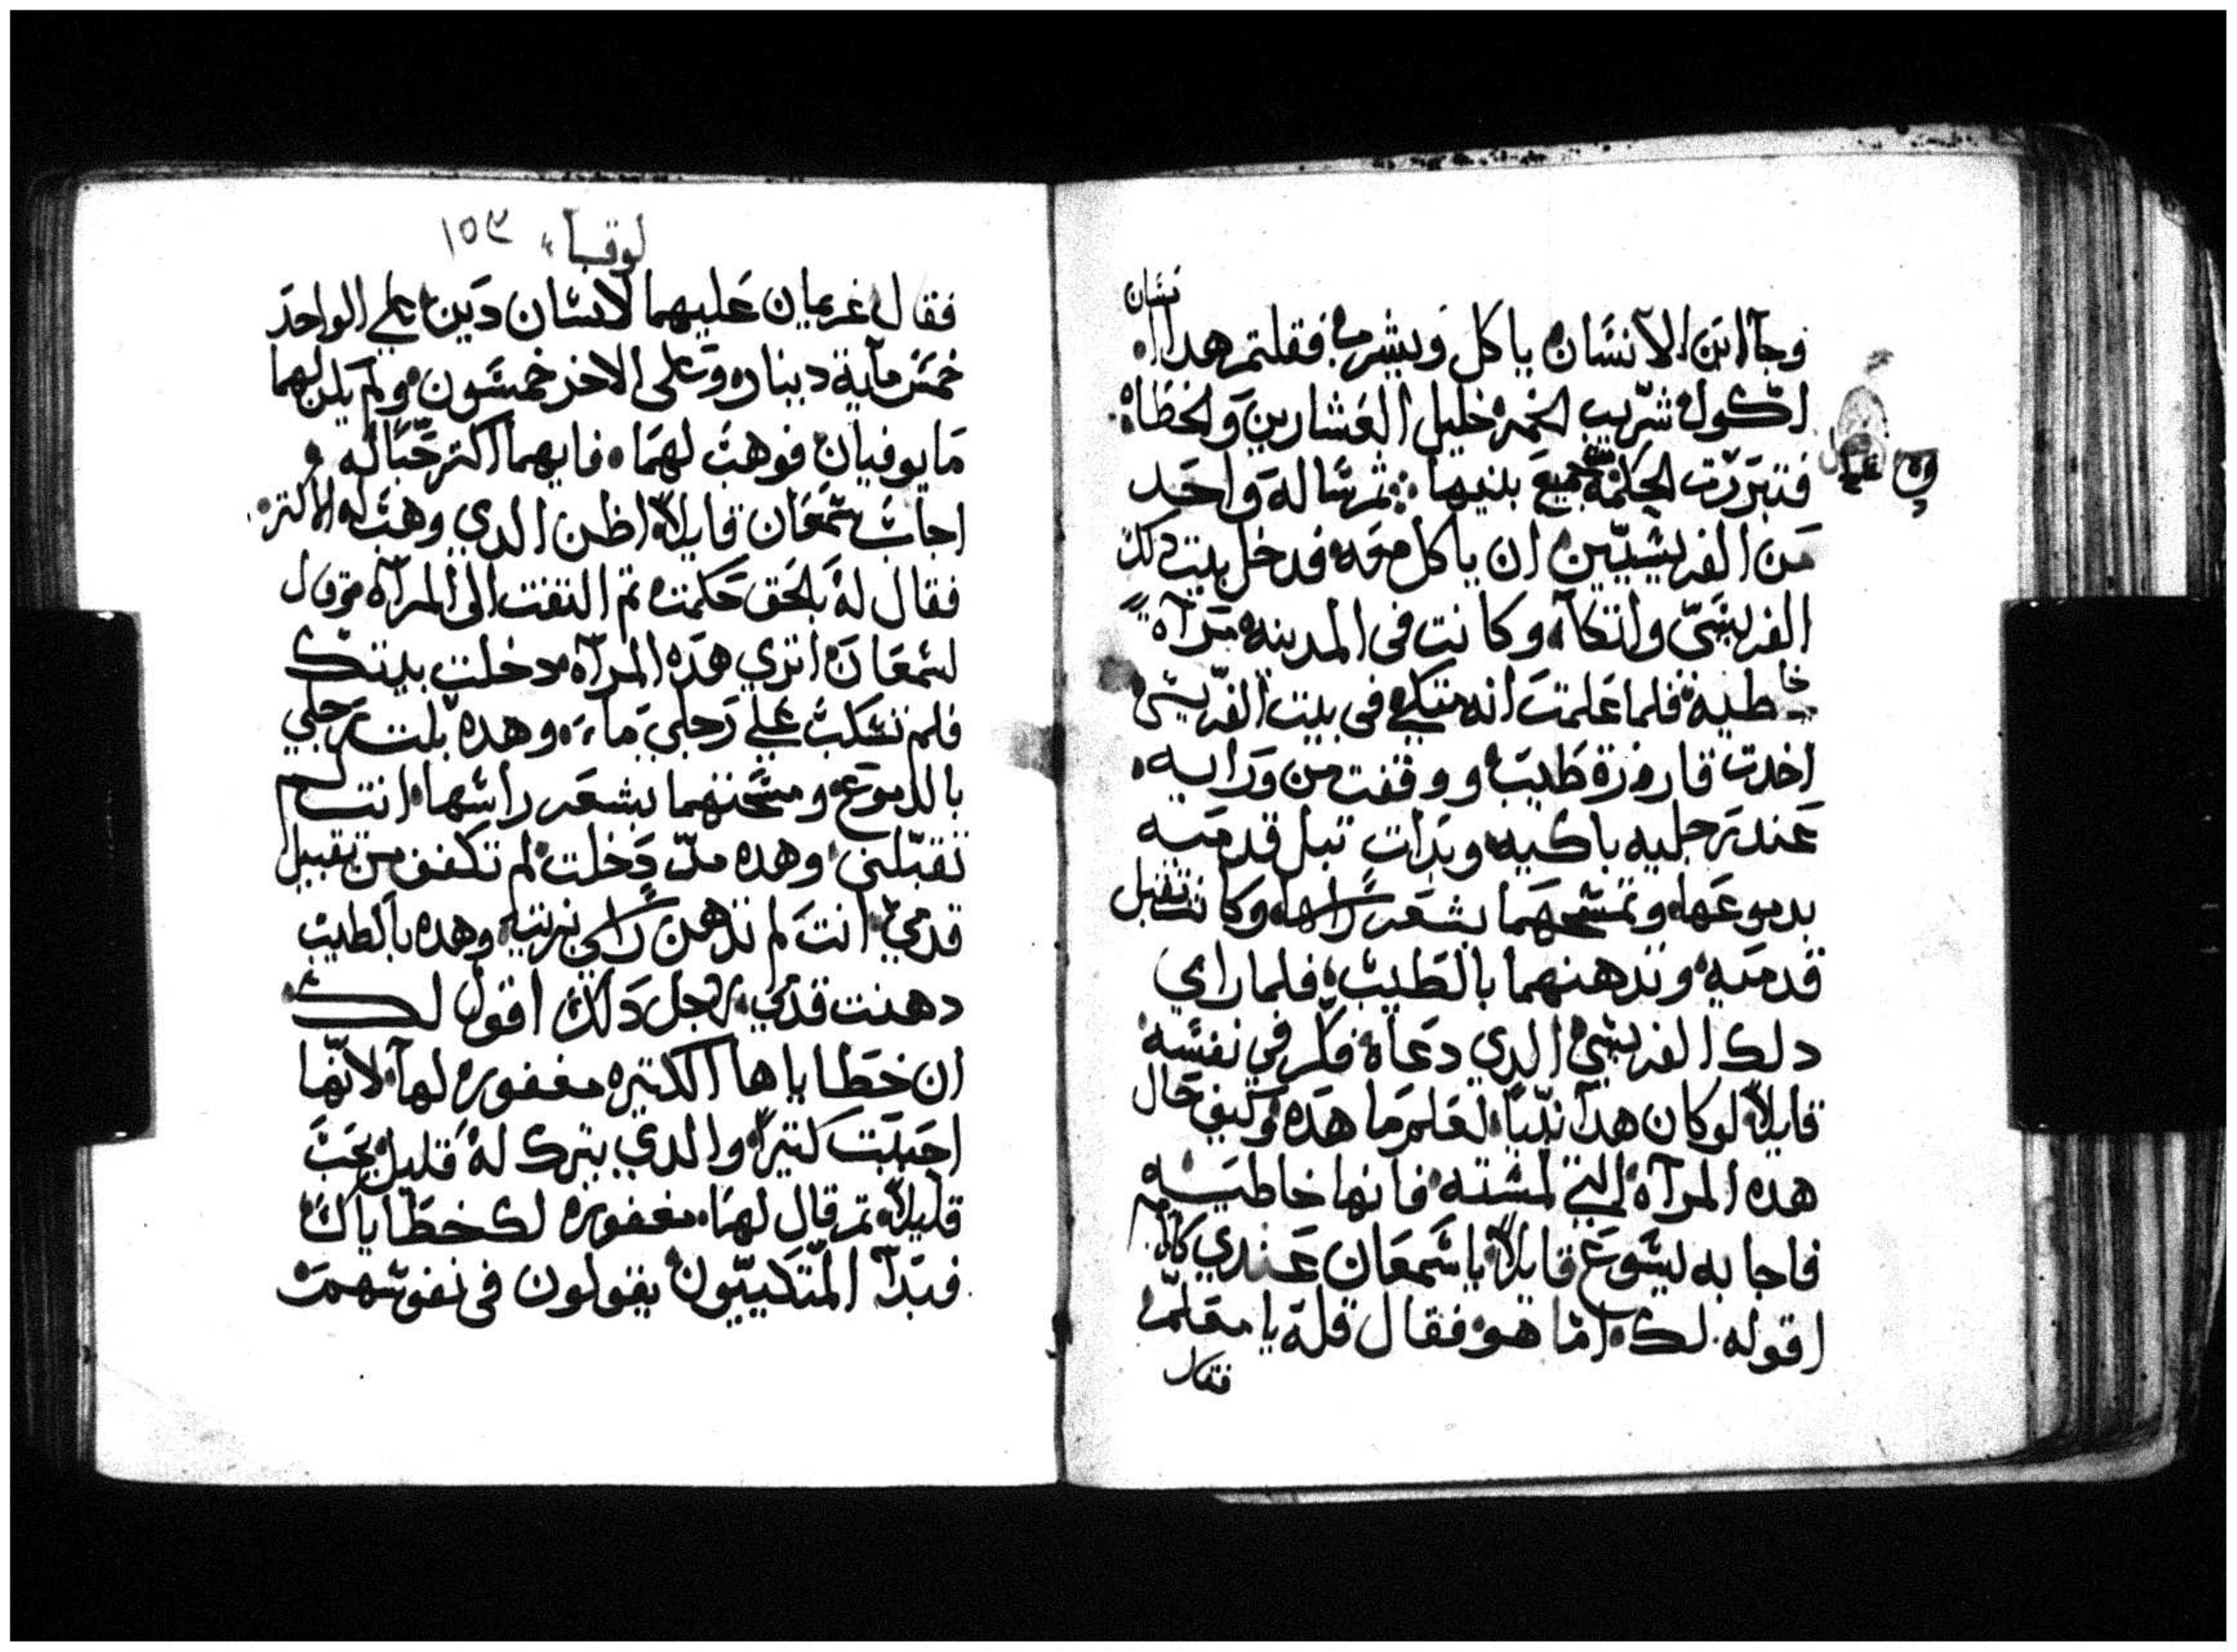 وجآ ابن الانسان ياكل ويشرب فقلتم هدا انسان
اكول شرّيب الخمر خليل العشارين والخطاة
فتبررت الحكمة من جميع بنيها ثم ساله واحد
من الفريسيّين ان ياكل معه فدخل بيت دلك
الفريسيّ واتكآ وكانت في المدينه مرآة
خاطية فلما علمت انه متكي في بيت الفرّيسي
اخدت قارورة طيب ووقفت من ورايه
عند رجليه باكيه وبدات تبل قدميه
بدموعها وتمسحهما بشعر راسها وكانت تقبل
قدميه وتدهنهما بالطيب فلما راي
دلك الفريسي الدي دعاه فكر في نفسه
قايلاً لو كان هدا نبيّا لعلم ما هده وكيف حال
هده المرآه التي لمسته فانها خاطيه
فاجابه يسوع قايلاً يا سمعان عندي كلام
اقوله لك اما هو فقال قله يا معلم
فقال
لوقا ١٥٣
فقال غريمان عليهما لانسان دين علي الواحد
خمس مآية دينار وعلى الاخر خمسون ولم يكن لهما
ما يوفيان فوهب لهما فايهما اكتر حبّا له
اجاب سمعان قايلاً اظن الدي وهب له الاكتر
فقال له بالحق حكمت ثم التفت الى المرآه وقال
لسمعان اتري هده المرآه دخلت بيتك
فلم تسكب علي رجلي ماء وهده بلت رجلي
بالدموع ومسحتهما بشعر راسها انت لم
تقبّلني وهده مند دخلت لم تكفف من تقبيل
قدمي انت لم تدهن راسي بزيت وهده بالطيب
دهنت قدمي لاجل دلك اقول لك
ان خطاياها الكتيره مغفوره لها لانها
احبت كتيرا والدي يترك له قليل يحب
قليلاً تم قال لها مغفوره لك خطاياك
فبدآ المتكييّون يقولون في نفوسهم